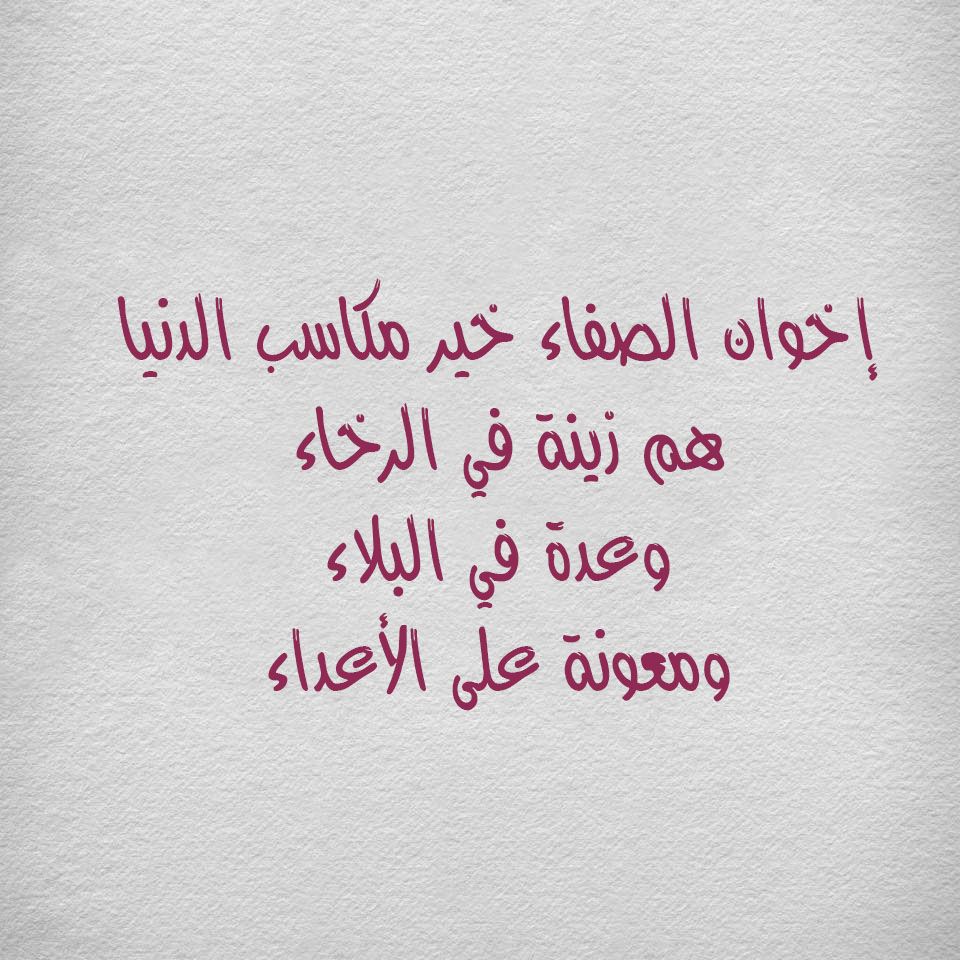 إخوان الصفاء خير مكاسب الدنيا
هم زينة في الرخاء
وعدة في البلاء
ومعونة على الأعداء